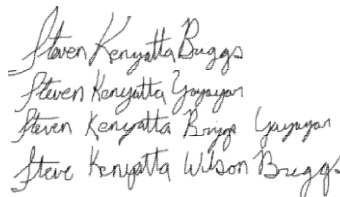 Steven Kenyatta Buggs
Steven Kenyatta Yayayan
Steven Kenyatta Briggs Yayayan
Steve Kenyatta Wilson Breggs